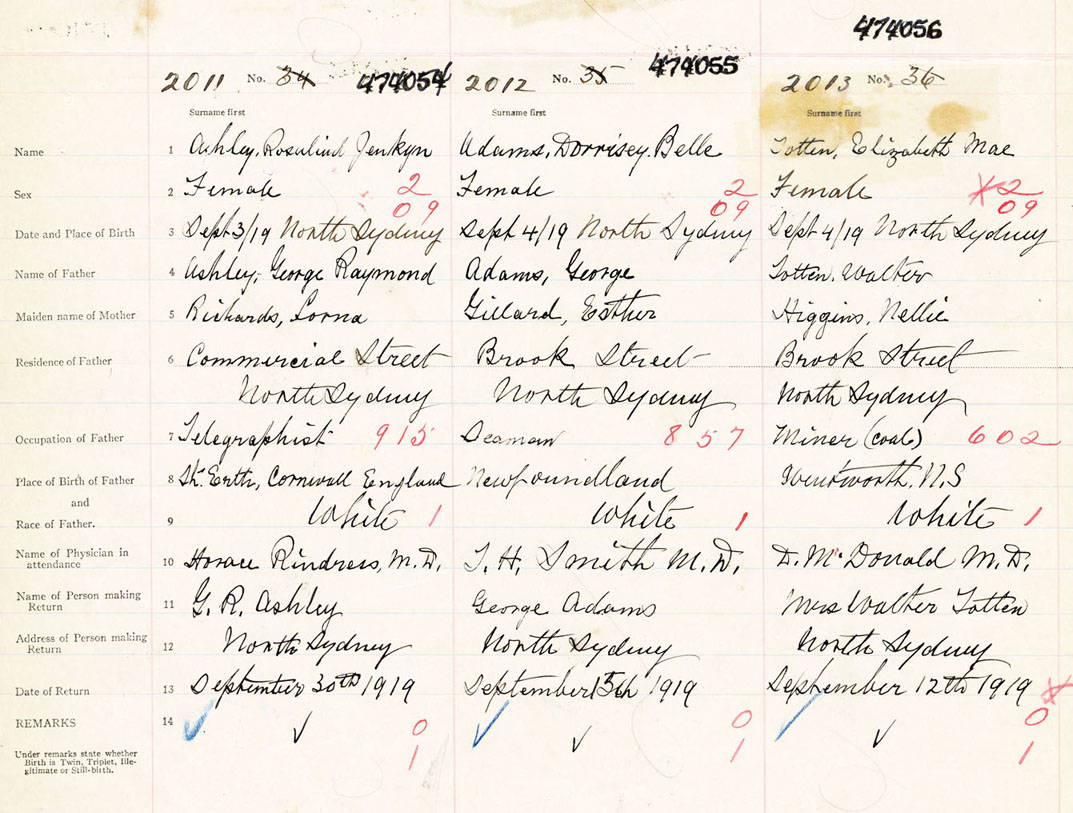 474056
2011 No. 34 474054 2012 No. 35 474055 2013 No. 36
Surname first Surname first Surname first
Name 1 Ashley, Rosalind Jenkyn Adams, Dorrisey Belle Totten, Elizabeth Mae
Sex 2 Female 2 Female 2 Female 2
09 09 09
Date and Place of Birth 3 Sept 3/19 North Sydney Sept 4/19 North Sydney Sept 4/19 North Sydney
Name of Father 4 Ashley, George Raymond Adams, George Totten, Walter
Maiden name of Mother 5 Richards, Lorna Gillard, Esther Higgins, Nellie
Residence of Father 6 Commercial Street Brook Street Brook Street
North Sydney North Sydney North Sydney
Occupation of Father 7 Telegraphist 915 Seaman 857 Miner (coal) 602
Place of Birth of Father 8 St. Erth, Cornwall England Newfoundland Wentworth, N.S
and
Race of Father. 9 White 1 White 1 White 1
Name of Physician in
attendance 10 Horace Rindress, M.D. T. H. Smith M.D. D. McDonald M.D.
Name of Person making
Return 11 G. R. Ashley George Adams Mrs Walter Totten
Address of Person making
Return 12 North Sydney North Sydney North Sydney
Date of Return 13 September 30th 1919 September 15th 1919 September 12th 1919
REMARKS 14 0 0 0
1 1 1
Under remarks state whether
Birth is Twin, Triplet, Ille-
gitimate or Still-birth.